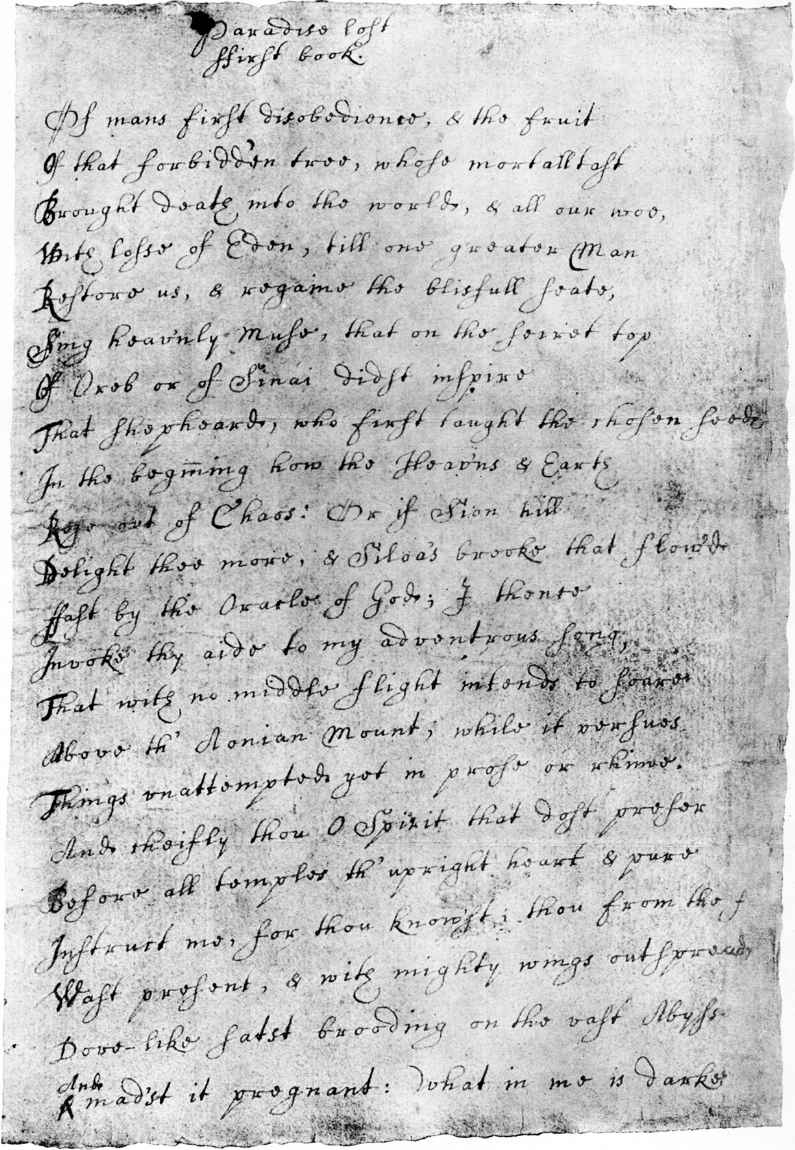 Paradise lost
ffirst book.
Of mans first disobedience, & the fruit
Of that forbidden tree, whose mortall tast
Brought death into the world, & all our woe,
With losse of Eden, till one greater Man
Restore us, & regaine the blisfull seate,
Sing heav'nly Muse, that on the secret top
Of Oreb or of Sinai didst inspire
That shepheard, who first taught the chosen seed
In the begiñing how the Heav'ns & Earth
Rose out of Chaos: Or if Sion hill
Delight thee more, & Siloa's brooke that flow'd
ffast by the Oracle of God; I thence
Invoke thy aide to my adventrous song,
That with no middle flight intends to soare
Above th' Aonian Mount, while it persues
Things unattempted yet in prose or rhime.
And cheifly thou O Spirit that dost prefer
Before all temples th' upright heart & pure
Instruct me, for thou knowst; thou from the f
Wast present, & with mighty wings outspread
Dove-like satst brooding on the vast Abyss
And mad'st it pregnant: What in me is darke